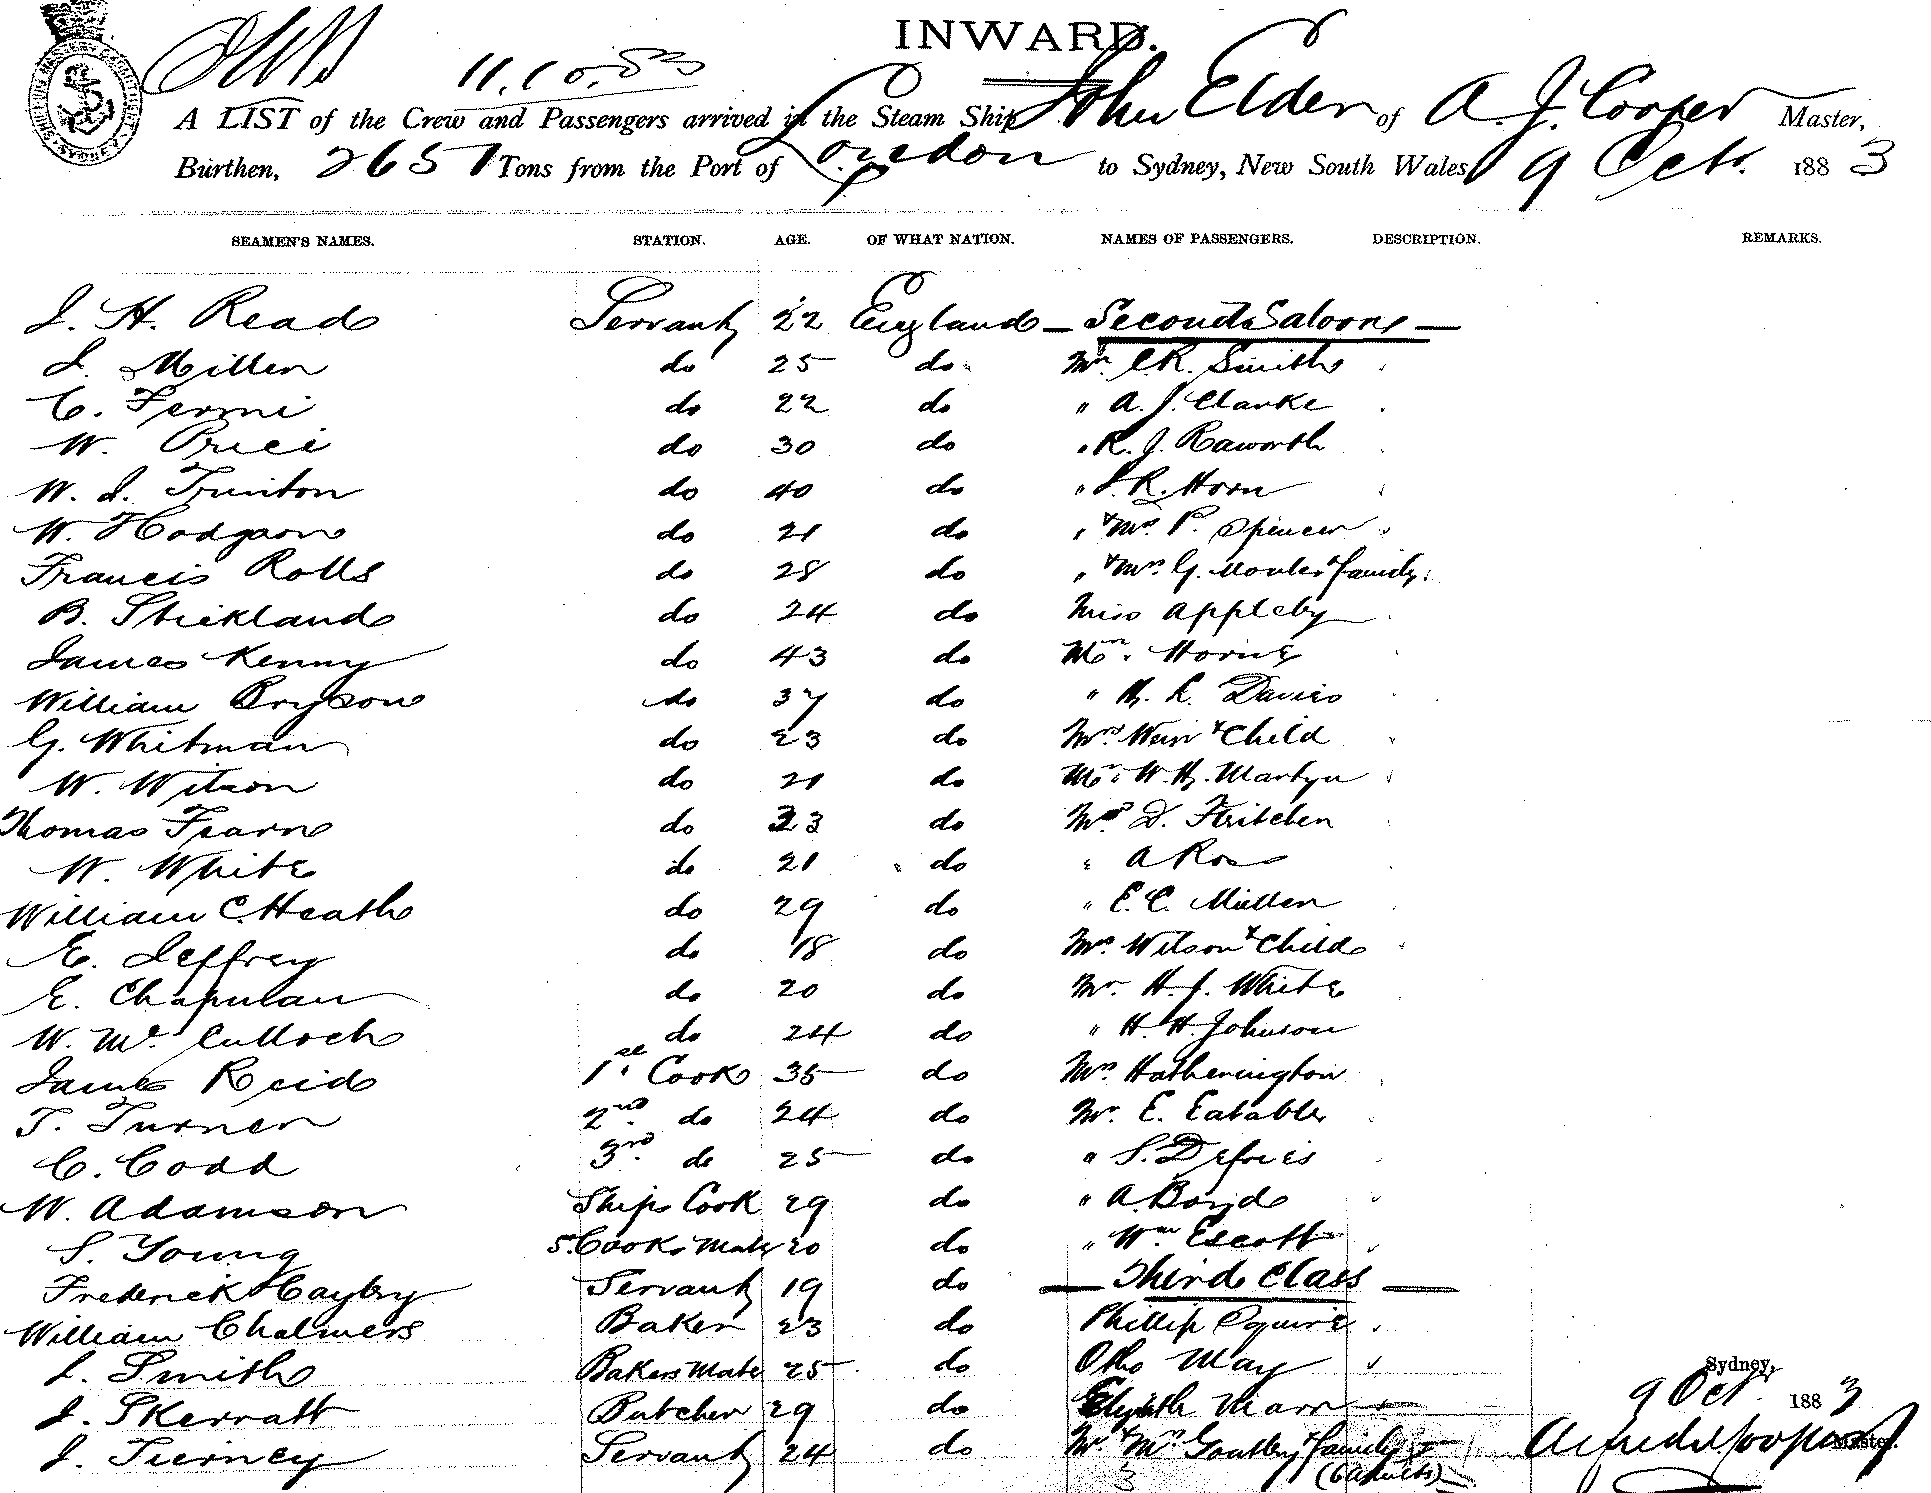 INWARD.
11.10.83
A LIST of the Crew and Passengers arrived in the Steam Ship John Elder of A. J. Cooper Master,
Burthen, 2651 Tons from the Port of London to Sydney, New South Wales, 9 Oct. 1883
SEAMEN'S NAMES. STATION. AGE. OF WHAT NATION. NAMES OF PASSENGERS. DESCRIPTION. REMARKS.
J. H. Read Servant 22 England — Second Saloon —
J. Miller do 25 do Mr. C R. Smith
C. Fermi do 22 do " A. J. Clarke
W. Price do 30 do " R. J. Raworth
W. J. Trunton do 40 do " J. R. Horn
W. Hodgson do 21 do " & Mrs P. Spencer
Francis Rolls do 28 do " & Mrs. G. & family
B. Strickland do 24 do Miss Appleby
James Kenny do 43 do Mr. Horne
William Bryson do 37 do " H. L. Davies
G. Whitman do 23 do Mrs. Weir & Child
W. Wilson do 21 do Mr. W. H. Martyn
Thomas Fearn do 23 do D. Fritchen
W. White do 21 do " A Ross
William C. Heath do 29 do " E. C. Miller
E. Jeffrey do 18 do Mrs Wilson & Child
E. Chapman do 20 do Mr. H. J. White
W. Mc. Culloch do 24 do " H. H. Johnson
James Reid 1st. Cook 35 do Mrs. Hatherington
T. Turner 2nd. do 24 do Mr. E. Eatable
C. Codd 3rd. do 25 do " S. Defries
W. Adamson Ships Cook 29 do " A. Boyd
S. Young S. Cooks Mate 20 do " Wm Escott
Frederick Haybry Servant 19 do — Third Class —
William Chalmers Baker 23 do Phillip Squire
J. Smith Bakers Mate 25 do Otho May
J. Skerratt Butcher 29 do Elizth Marr
J. Tierney Servant 24 do Mr. & Mrs & family
(6 Adults)
Sydney,
9 Oct 1883
Alfred J Cooper
Master.